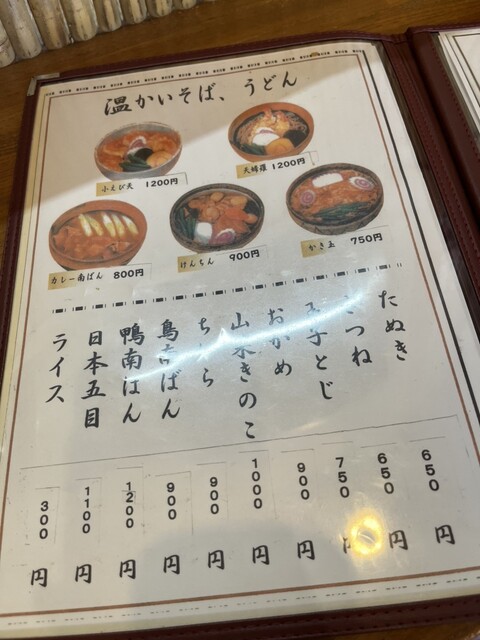 温かいそば、うどん
小えび天 1200円
天婦羅 1200円
カレー南ばん 800円
けんちん 900円
かき玉 750円
たぬき 650円
きつね 650円
玉子とじ 750円
おかめ 900円
山菜きのこ 1000円
ちから 900円
鳥南ばん 900円
鴨南ばん 1200円
日本五目 1100円
ライス 300円